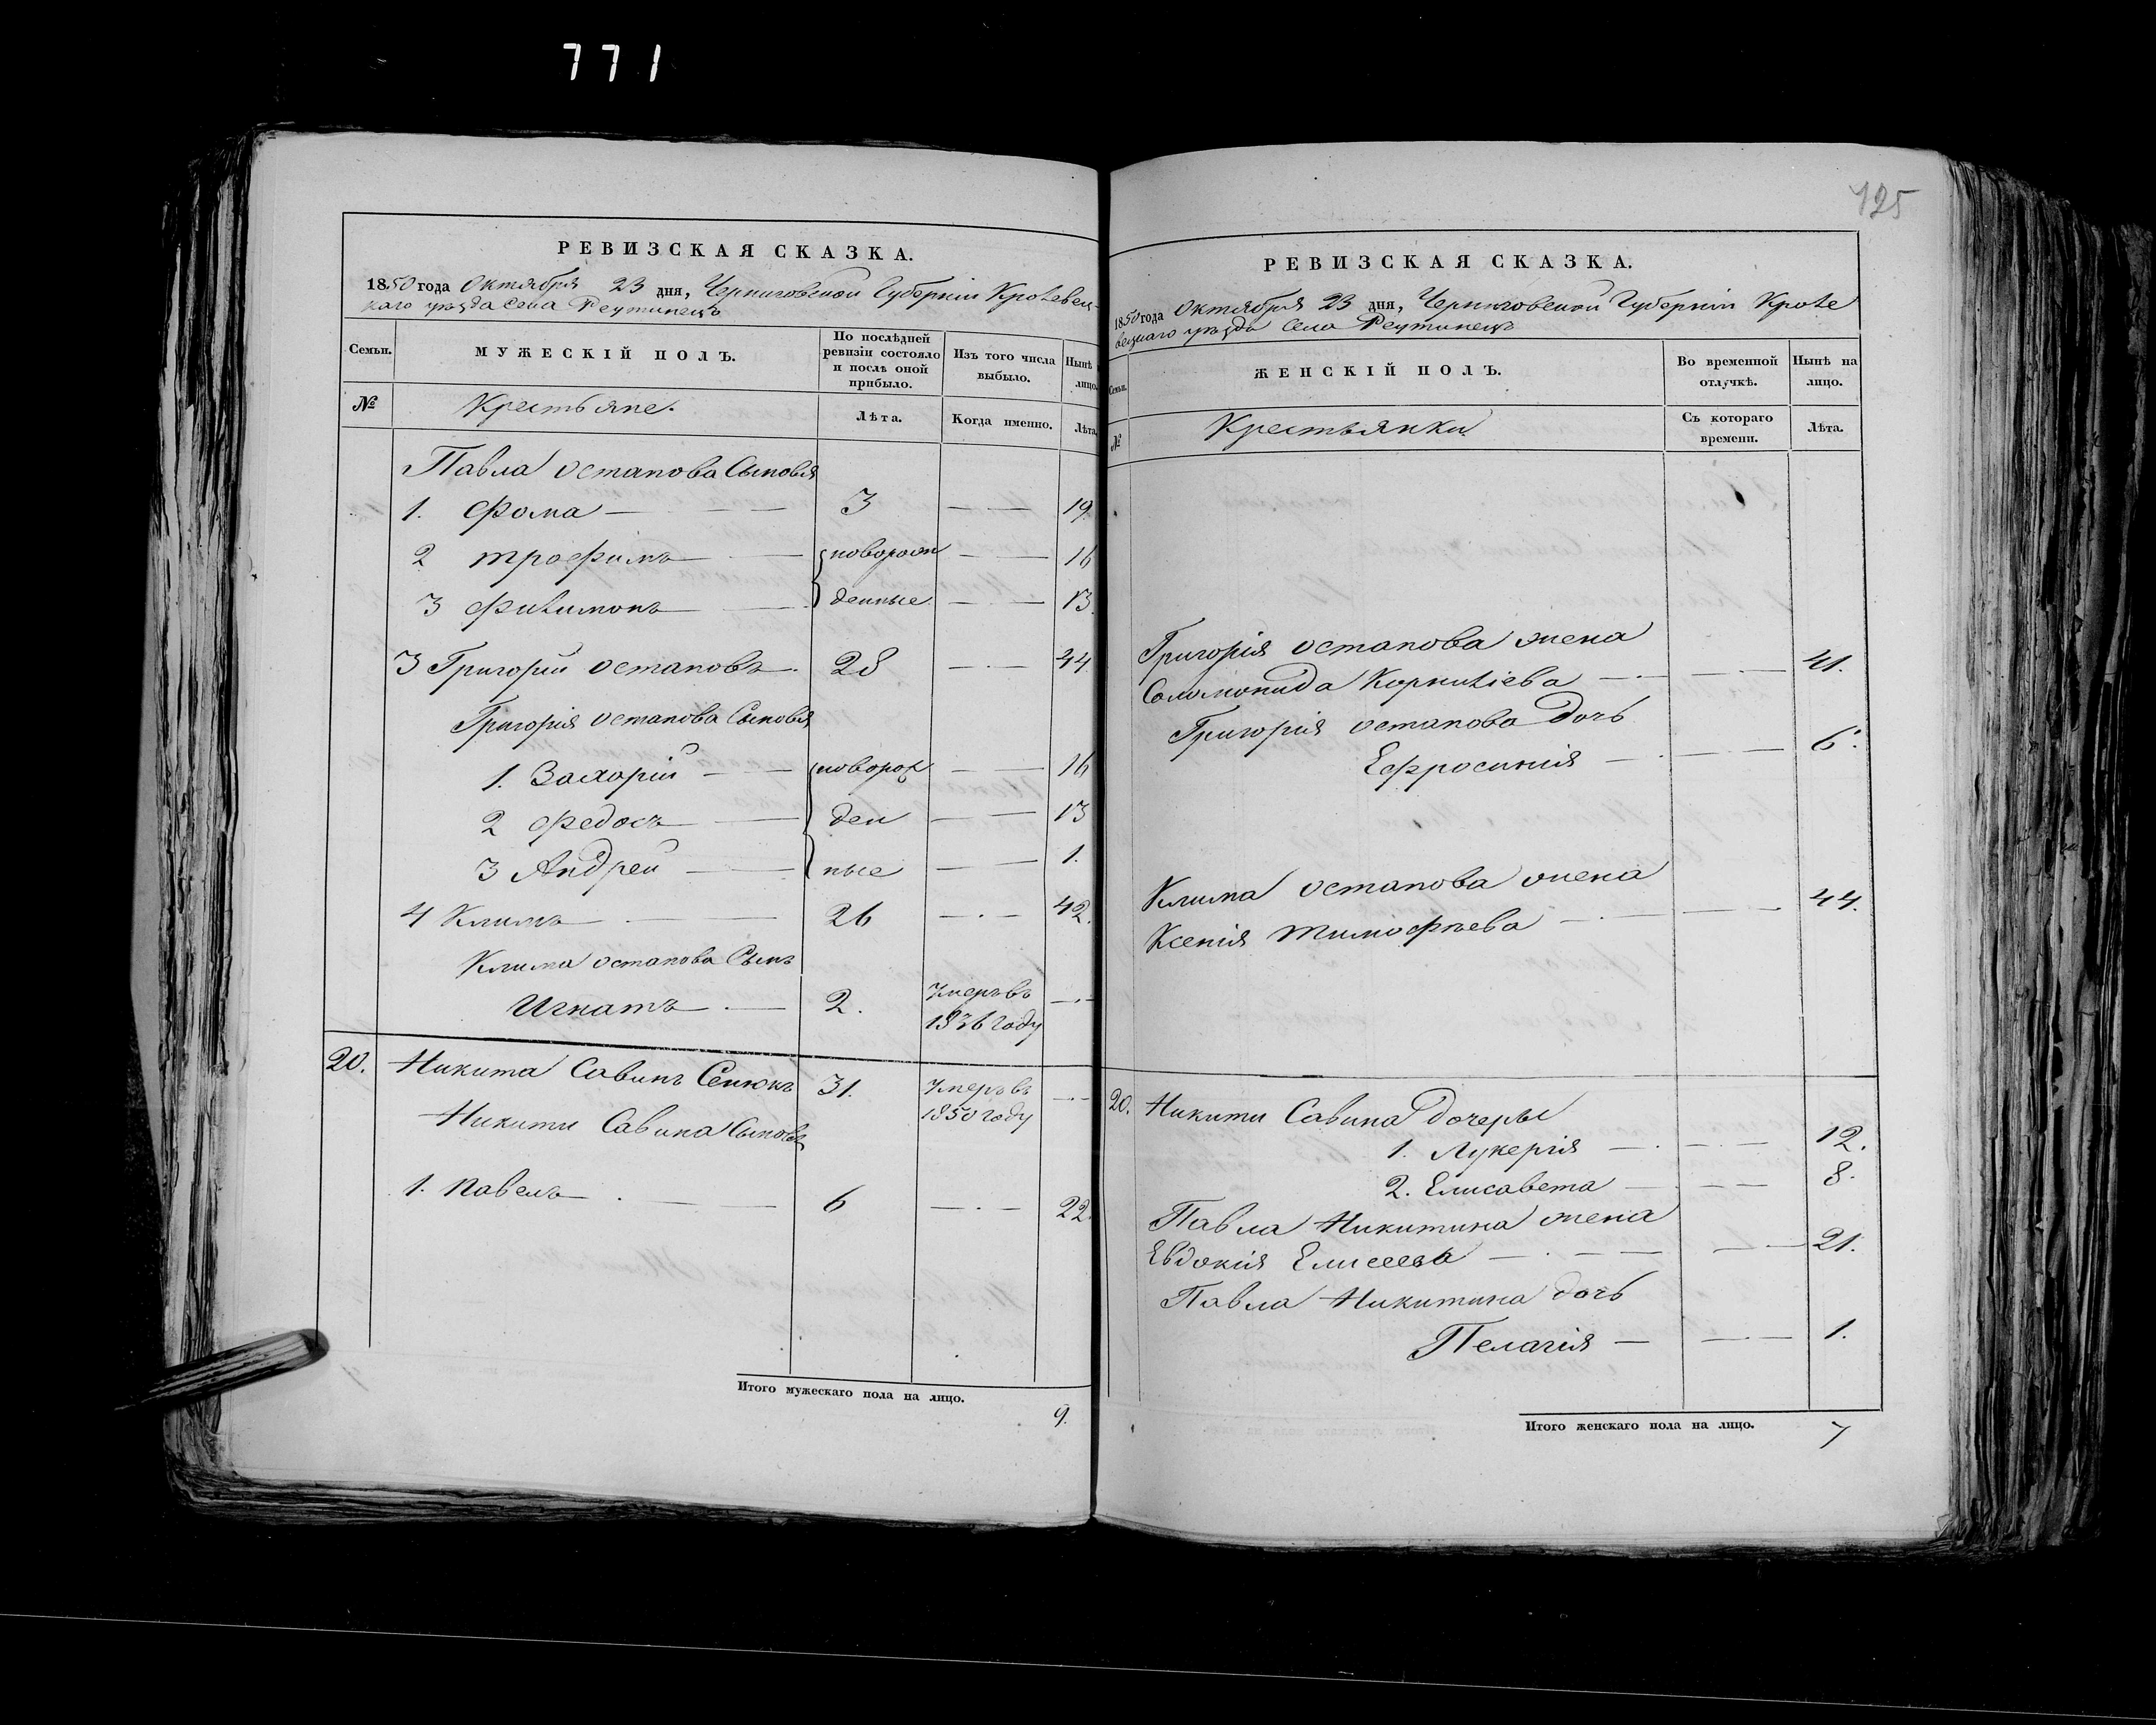 771
РЕВИЗСКАЯ СКАЗКА.
1850 года Октября 23 дня, Черниговской Губерніи Кролевец-
каго уѣзда села Реутинецъ
Семьи.
МУЖЕСКІЙ ПОЛЪ.
По послѣдней ревизіи состояло и послѣ оной прибыло.
Изъ того числа выбыло.
Нынѣ на лицо.
№
Крестьяне.
Лѣта.
Когда именно.
Лѣта.
Павла Остапова Сыновья
1. Фома — 3 — 19
2 Трофимъ — новорож — 16
3 Филимонъ — денные — 13.
3 Григорій Остаповъ 28 — 44
Григорія Остапова Сыновья
1. Захарій — новорож — 16
2 Федосъ — ден — 13
3 Андрей — ные — 1.
4 Климъ — 26 — 42.
Клима Остапова Сынъ
Игнатъ — 2. Умеръ въ 1836 году —
20. Никита Савинъ Сенюкъ 31. Умеръ въ 1850 году —
Никиты Савина Сыновья
1. Павелъ — 6 — 22.
Итого мужескаго пола на лицо.
9.
125
РЕВИЗСКАЯ СКАЗКА.
1850 года Октября 23 дня, Черниговской Губерніи Кроле
вецкаго уѣзда Села Реутинецъ
Семьи.
ЖЕНСКІЙ ПОЛЪ.
Во временной отлучкѣ.
Нынѣ на лицо.
№
Крестьянки
Съ котораго времени.
Лѣта.
Григорія Остапова жена
Соломонида Корниліева — 41.
Григорія Остапова дочь
Ефросинія — 6.
Клима Остапова жена
Ксенія Тимофѣева — 44.
20. Никиты Савина дочеры
1. Лукерія — 12.
2. Елисавета — 8.
Павла Никитина жена
Евдокія Елисеева — 21.
Павла Никитина дочь
Пелагія — 1.
Итого женскаго пола на лицо.
7